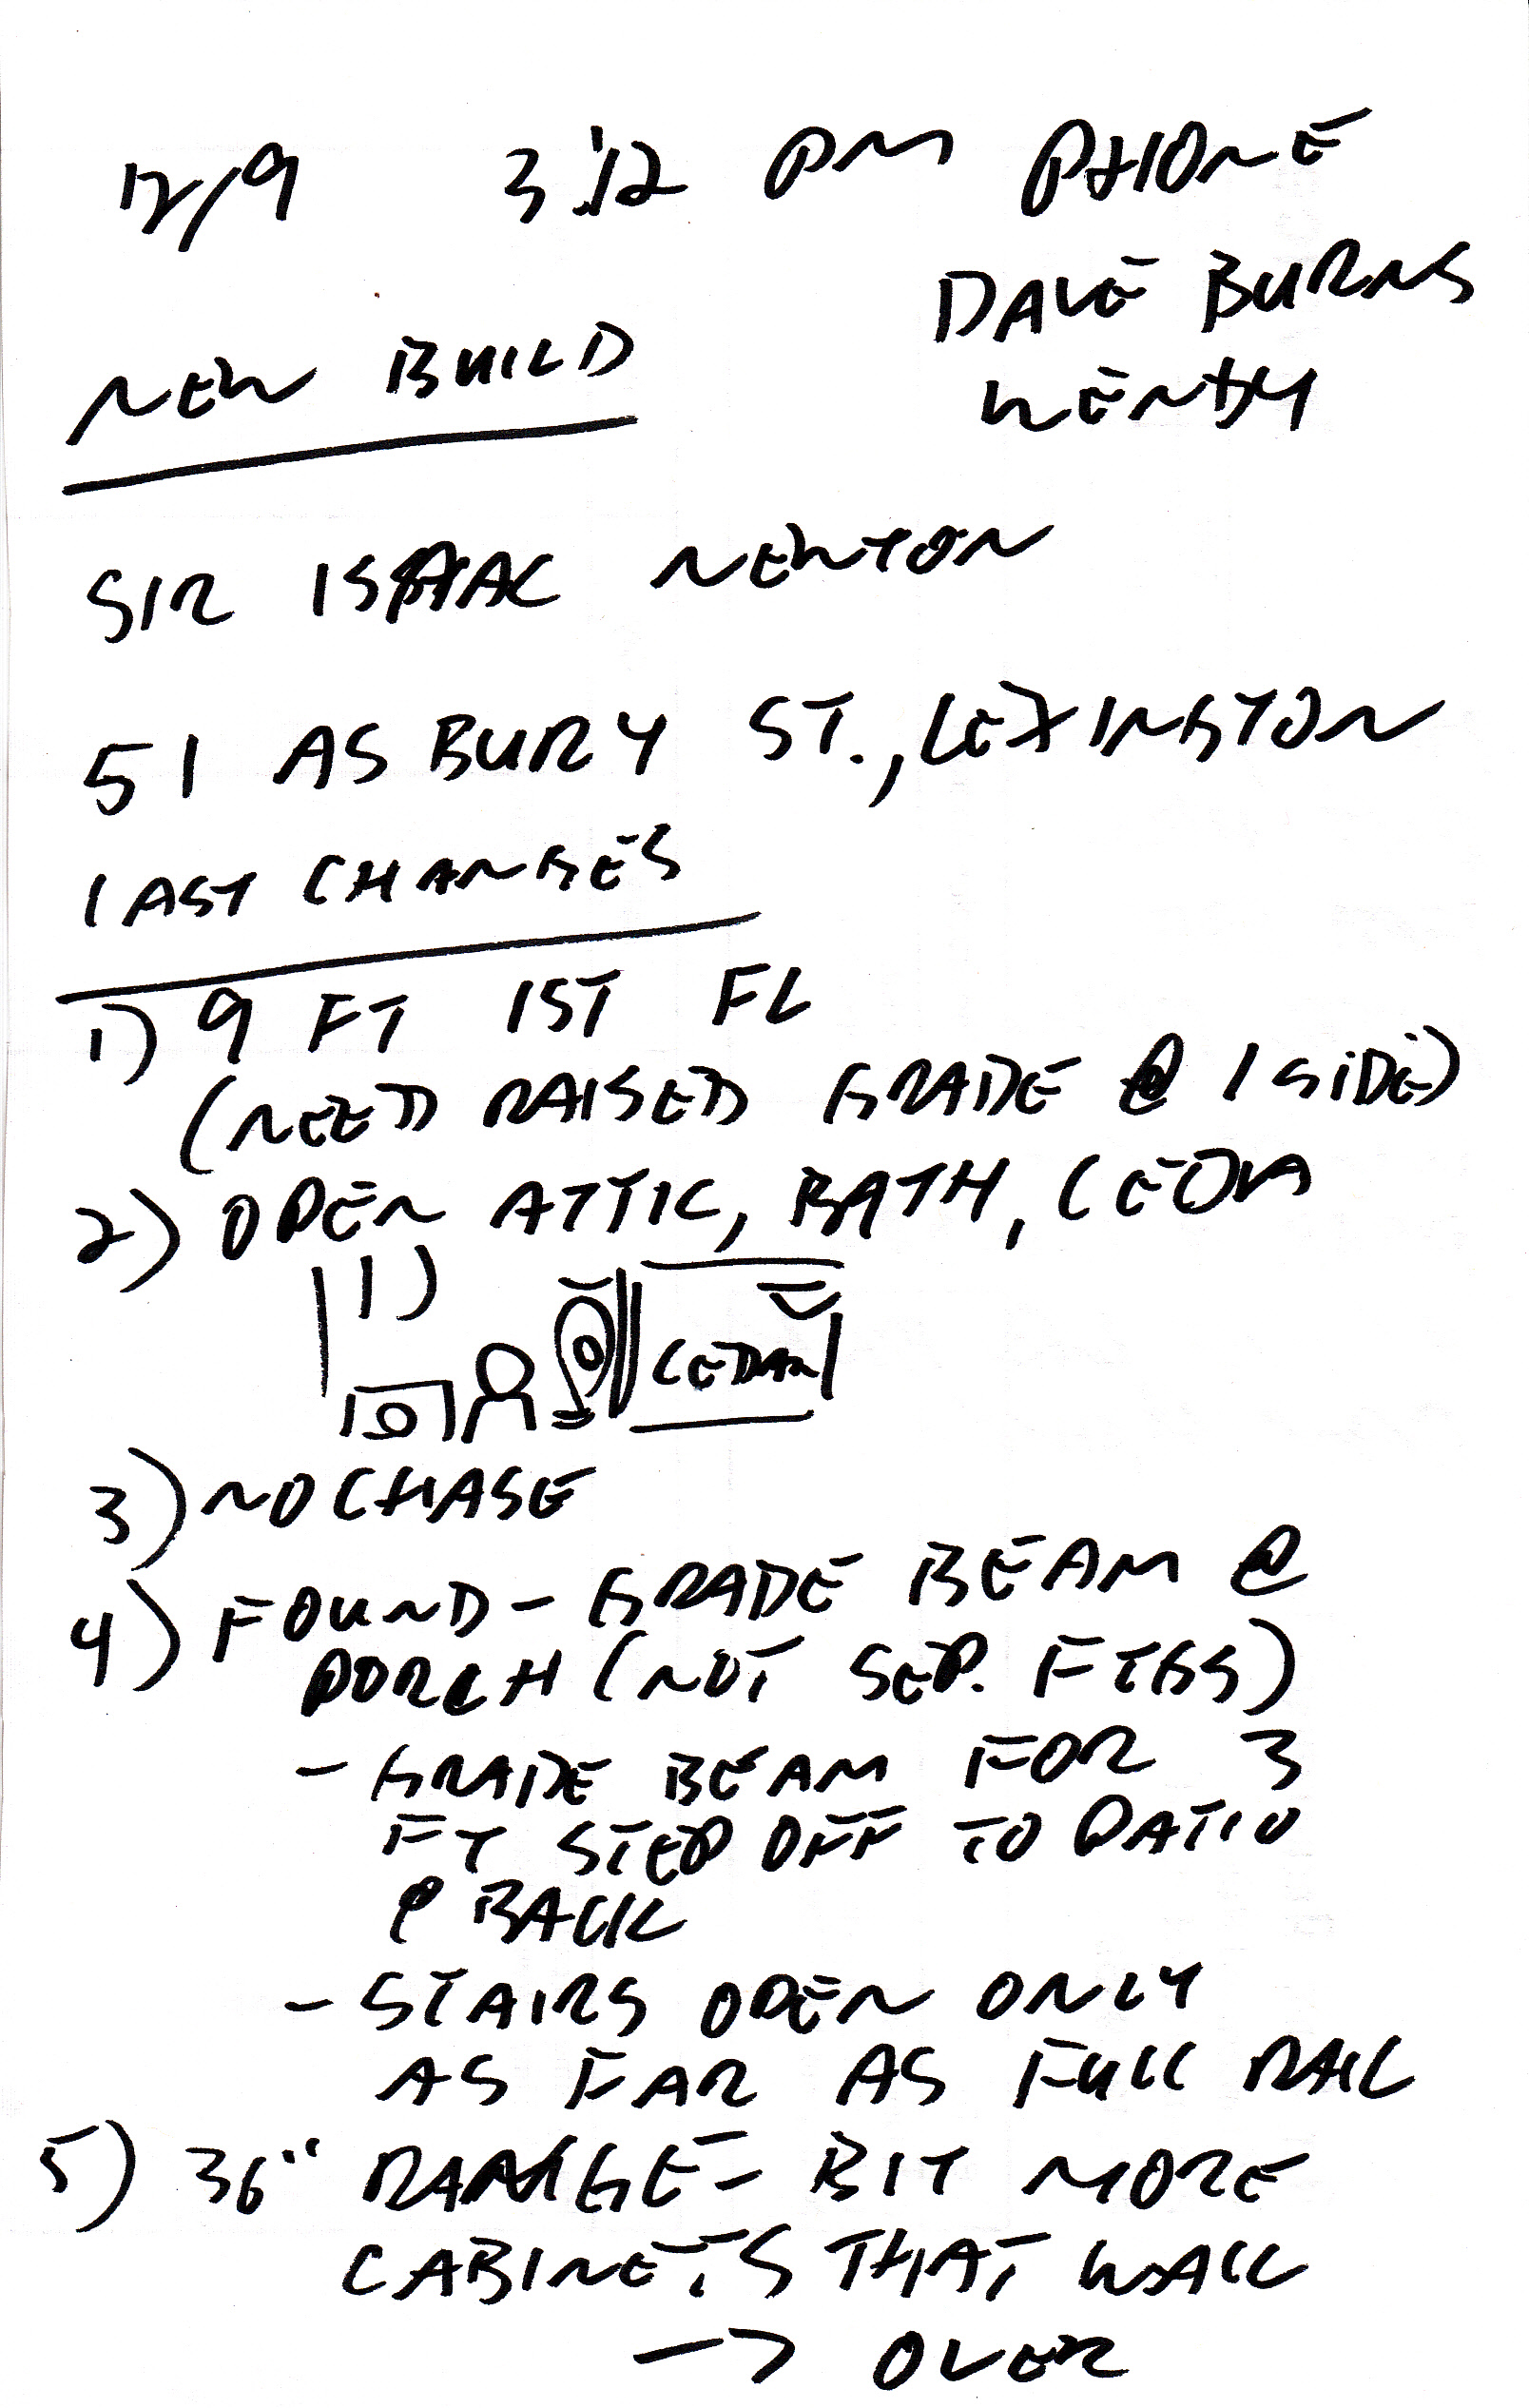 12/9 3:12 PM PHONE
DAVE BURNS
WENDY
NEW BUILD
SIR ISAAC NEWTON
51 ASBURY ST., LEXINGTON
LAST CHANGES
1) 9 FT 1ST FL
(NEED RAISED GRADE @ 1 SIDE)
2) OPEN ATTIC, BATH, CEDAR
CEDAR
3) NO CHASE
4) FOUND - GRADE BEAM @
PORCH (NOT SEP. FTGS)
- GRADE BEAM FOR 3
FT STEP OFF TO PATIO
@ BACK
- STAIRS OPEN ONLY
AS FAR AS FULL RAIL
5) 36" RANGE - BIT MORE
CABINETS THAT WALL
→ OVER